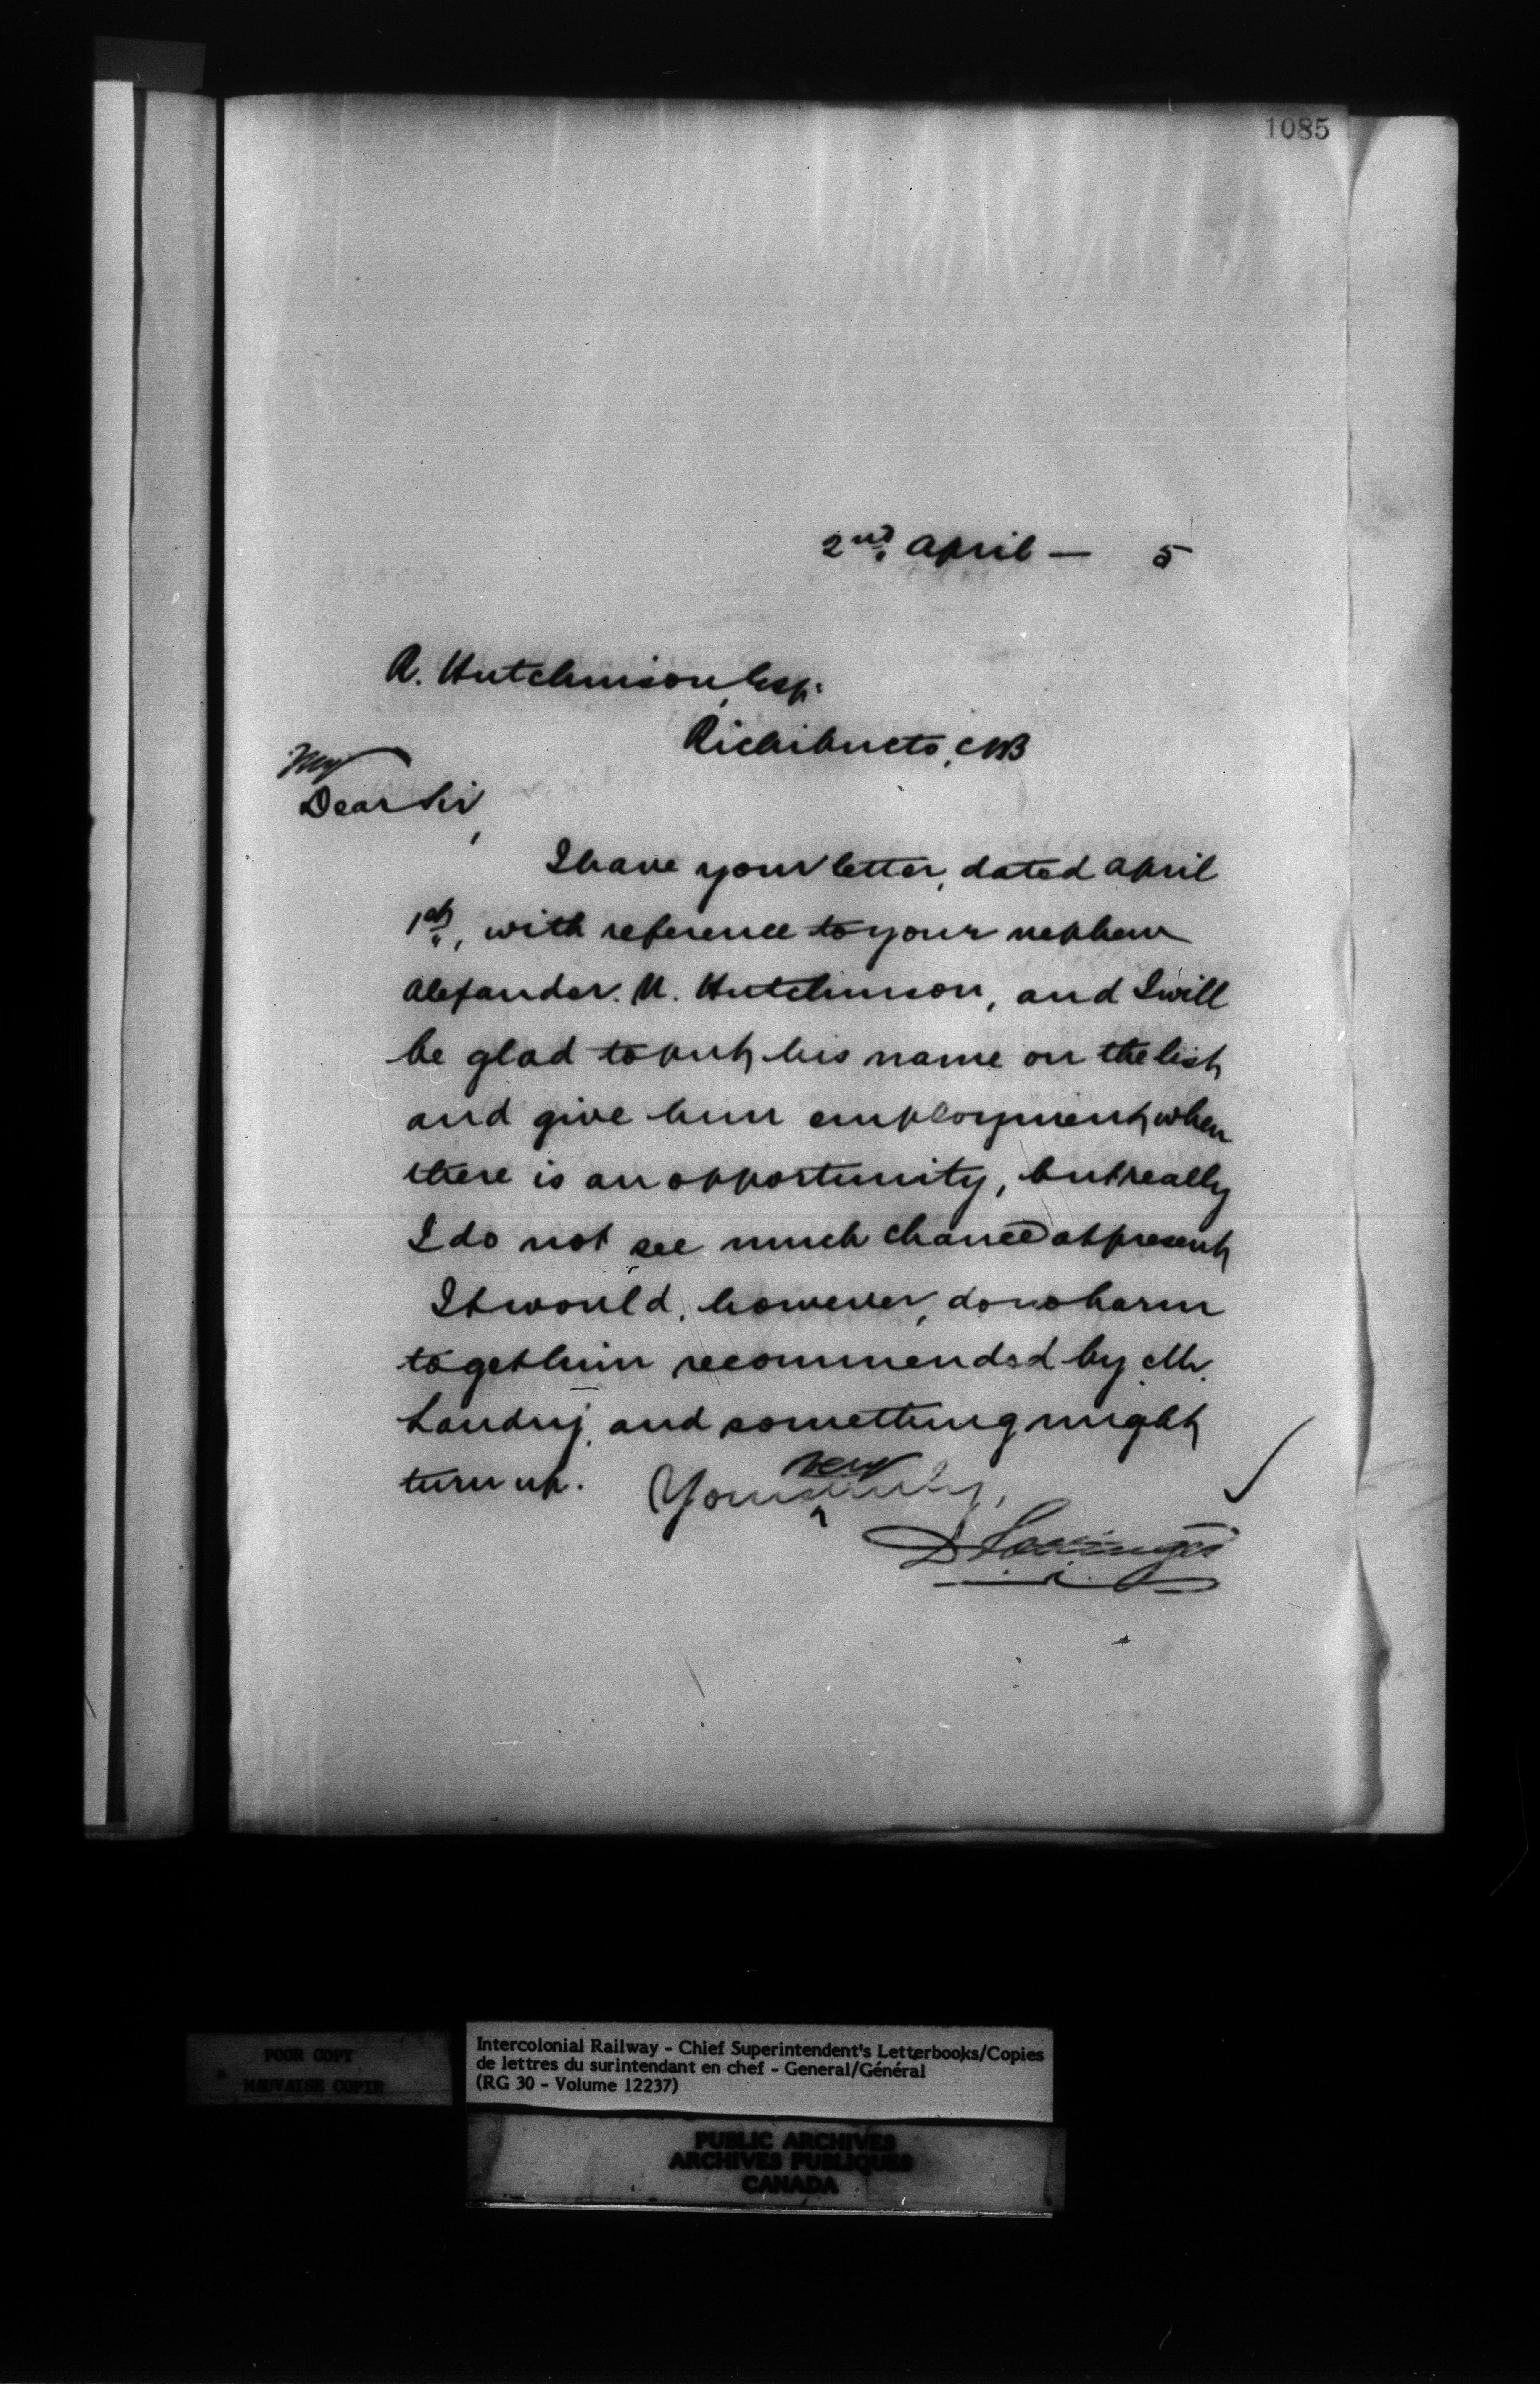 1085
2nd. April — 5
R. Hutchinson, Esq.
Richibucto, NB
My
Dear Sir,
I have your letter, dated April
1st., with reference to your nephew
Alexander. M. Hutchinson, and I will
be glad to put his name on the list
and give him employment when
there is an opportunity, but really
I do not see much chance at present
It would, however, do no harm
to get him recommended by Mr.
Landry, and something might
turn up. Yours very truly,
D Pottinger
POOR COPY
MAUVAISE COPIE
Intercolonial Railway - Chief Superintendent's Letterbooks/Copies
de lettres du surintendant en chef - General/Général
(RG 30 - Volume 12237)
PUBLIC ARCHIVES
ARCHIVES PUBLIQUES
CANADA